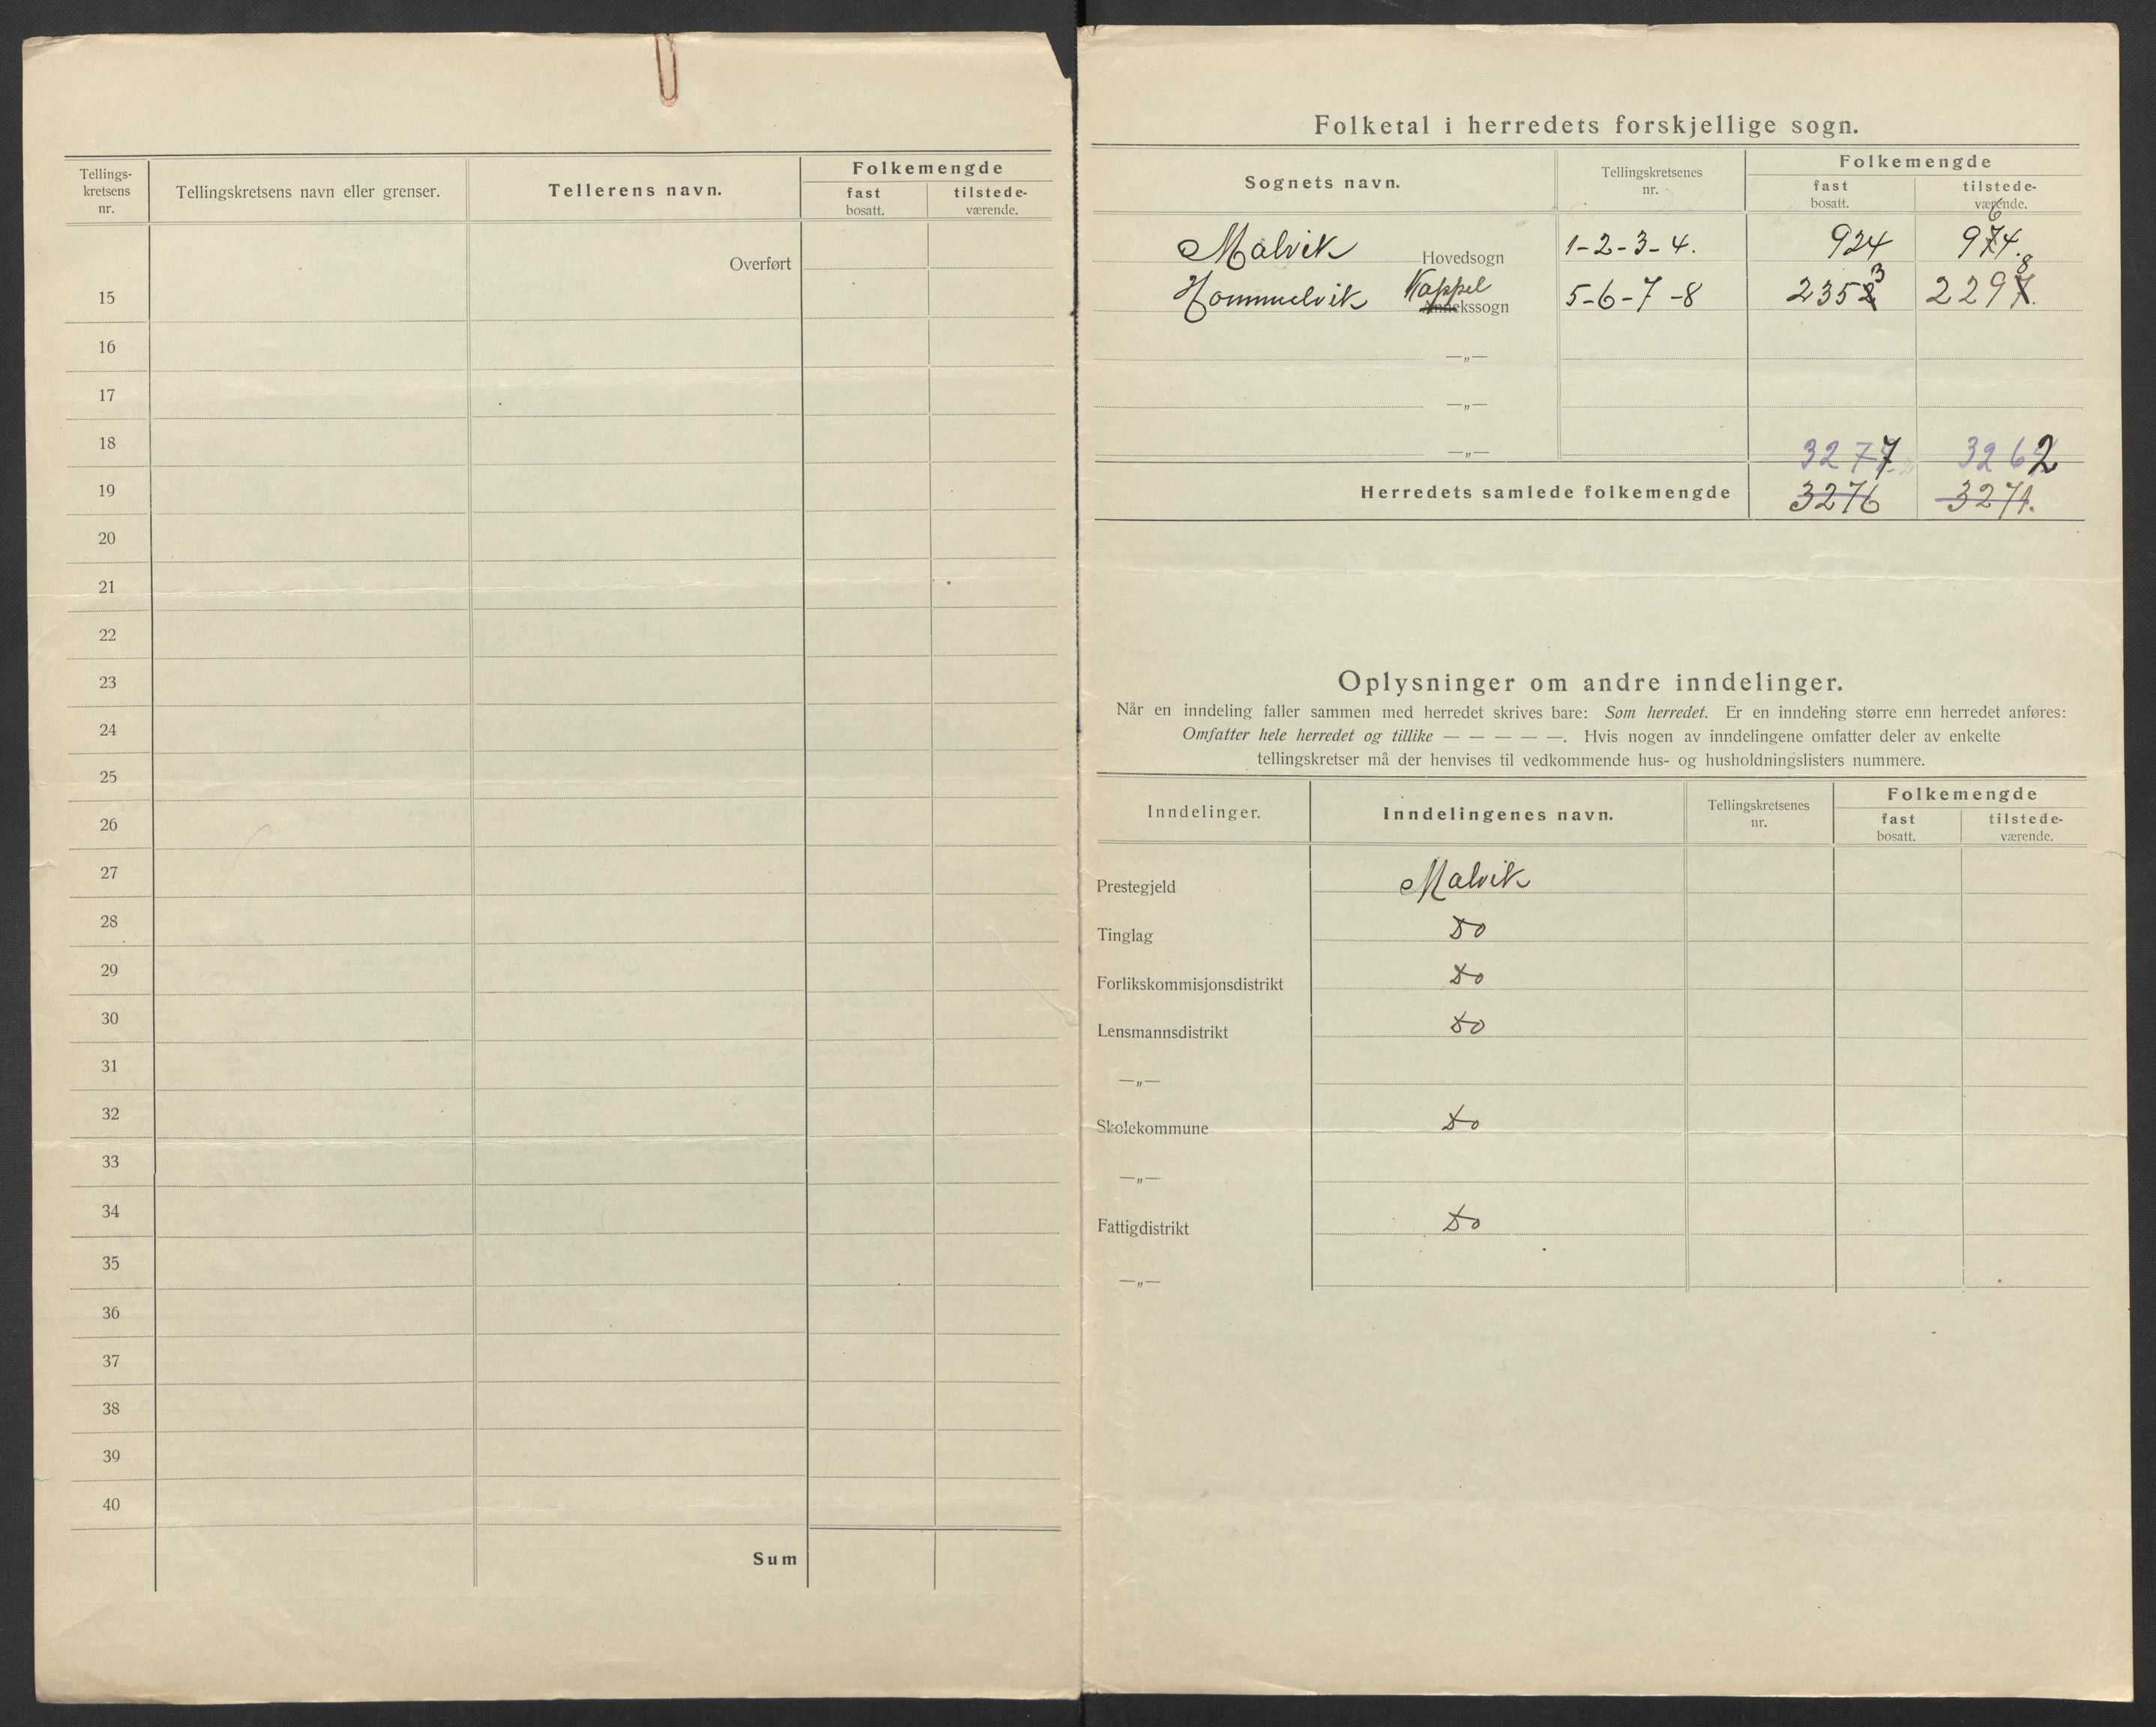 Tellings-
kretsens
nr.
Tellingskretsens navn eller grenser.
Tellerens navn.
Folkemengde
fast
bosatt.
tilstede-
værende.
Overført
15
16
17
18
19
20
21
22
23
24
25
26
27
28
29
30
31
32
33
34
35
36
37
38
39
40
Sum
Folketal i herredets forskjellige sogn.
Sognets navn.
Tellingskretsenes
nr.
Folkemengde
fast
bosatt.
tilstede-
værende.
6
Malvik Hovedsogn 1-2-3-4. 924 974.
3 8
Hommelvik Kappel Annekssogn 5-6-7-8 2352 2297.
—„—
—„—
—„—
3277 3262
Herredets samlede folkemengde 3276 3271.
Oplysninger om andre inndelinger.
Når en inndeling faller sammen med herredet skrives bare: Som herredet. Er en inndeling større enn herredet anføres:
Omfatter hele herredet og tillike — — — — —. Hvis nogen av inndelingene omfatter deler av enkelte
tellingskretser må der henvises til vedkommende hus- og husholdningslisters nummere.
Inndelinger.
Inndelingenes navn.
Tellingskretsenes
nr.
Folkemengde
fast
bosatt.
tilstede-
værende.
Prestegjeld Malvik
Tinglag Do
Forlikskommisjonsdistrikt Do
Lensmannsdistrikt Do
—„—
Skolekommune Do
—„—
Fattigdistrikt Do
—„—